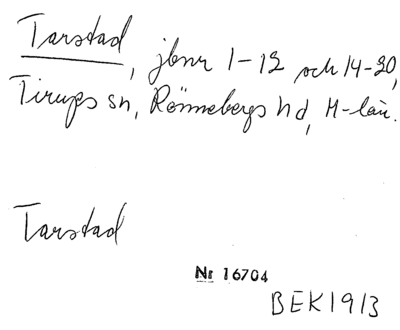 Tarstad, jbnr 1-12 och 14-20,
Tirups sn, Rönnebergs hd, M-län.
Tarstad
Nr 16704
BEK1913